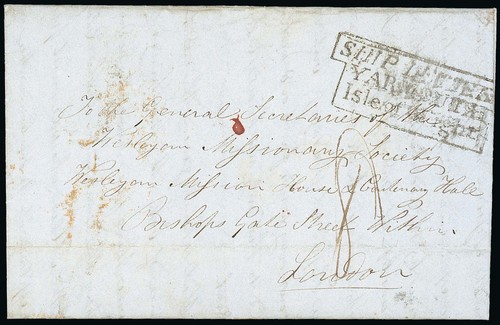 SHIP LETTER
YARMOUTH
Isle of Wight
To the General Secretaries of the
Wesleyan Missionary Society
Wesleyan Mission House & Centenary Hall
Bishops Gate Street Within
London
8